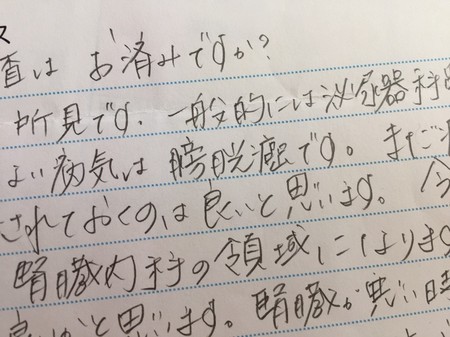 査は お済みですか?
所見です. 一般的には泌尿器科
よい病気は 膀胱です。まだご
されておくのは良いと思います。 今
腎臓内科の領域になります
良いかと思います。腎臓が悪い時